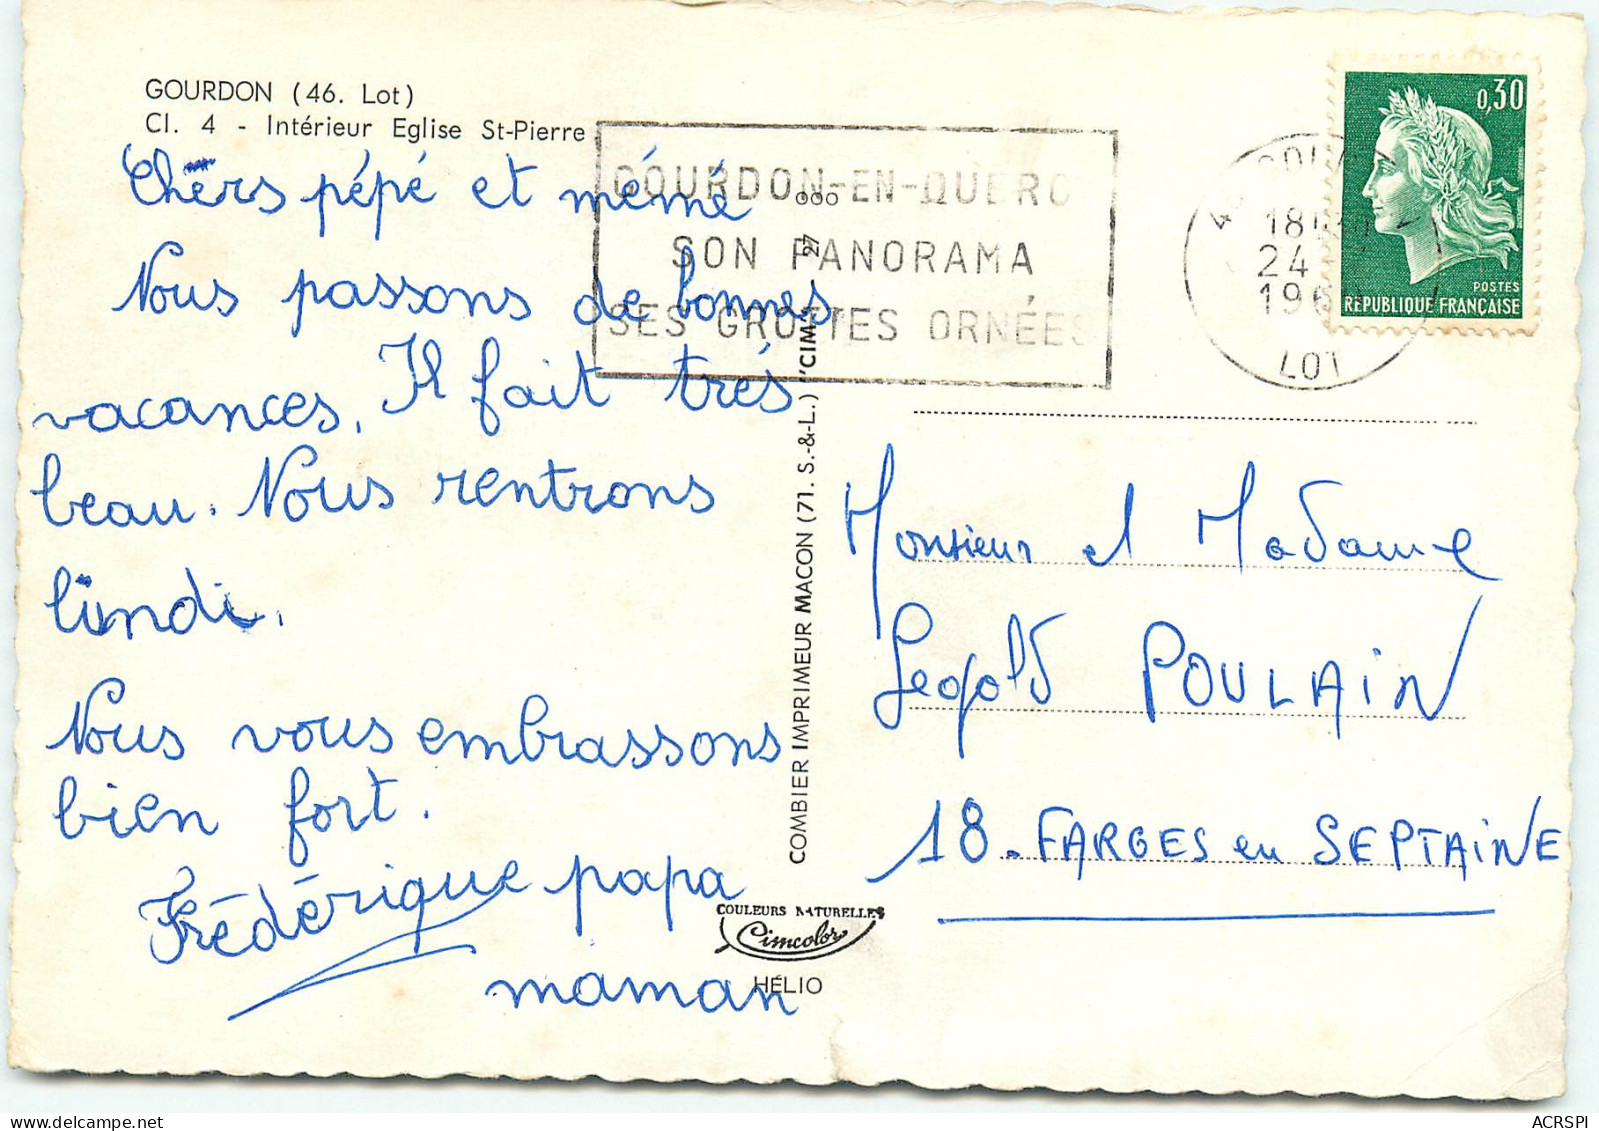 GOURDON (46. Lot)
Cl. 4 - Intérieur Eglise St-Pierre
Chers pépé et mémé
Nous passons de bonnes
vacances. Il fait trés
beau. Nous rentrons
lundi.
Nous vous embrassons
bien fort.
Frédérique papa
maman
GOURDON-EN-QUERC
SON PANORAMA
SES GROTTES ORNÉES
COMBIER IMPRIMEUR MACON (71. S.-&-L.) "CIM"
COULEURS NATURELLES
Cimcolor
HÉLIO
18
24
LOT
0,30
POSTES
RÉPUBLIQUE FRANÇAISE
Monsieur et Madame
Léopold POULAIN
18. FARGES en SEPTAINE
ACRSPI